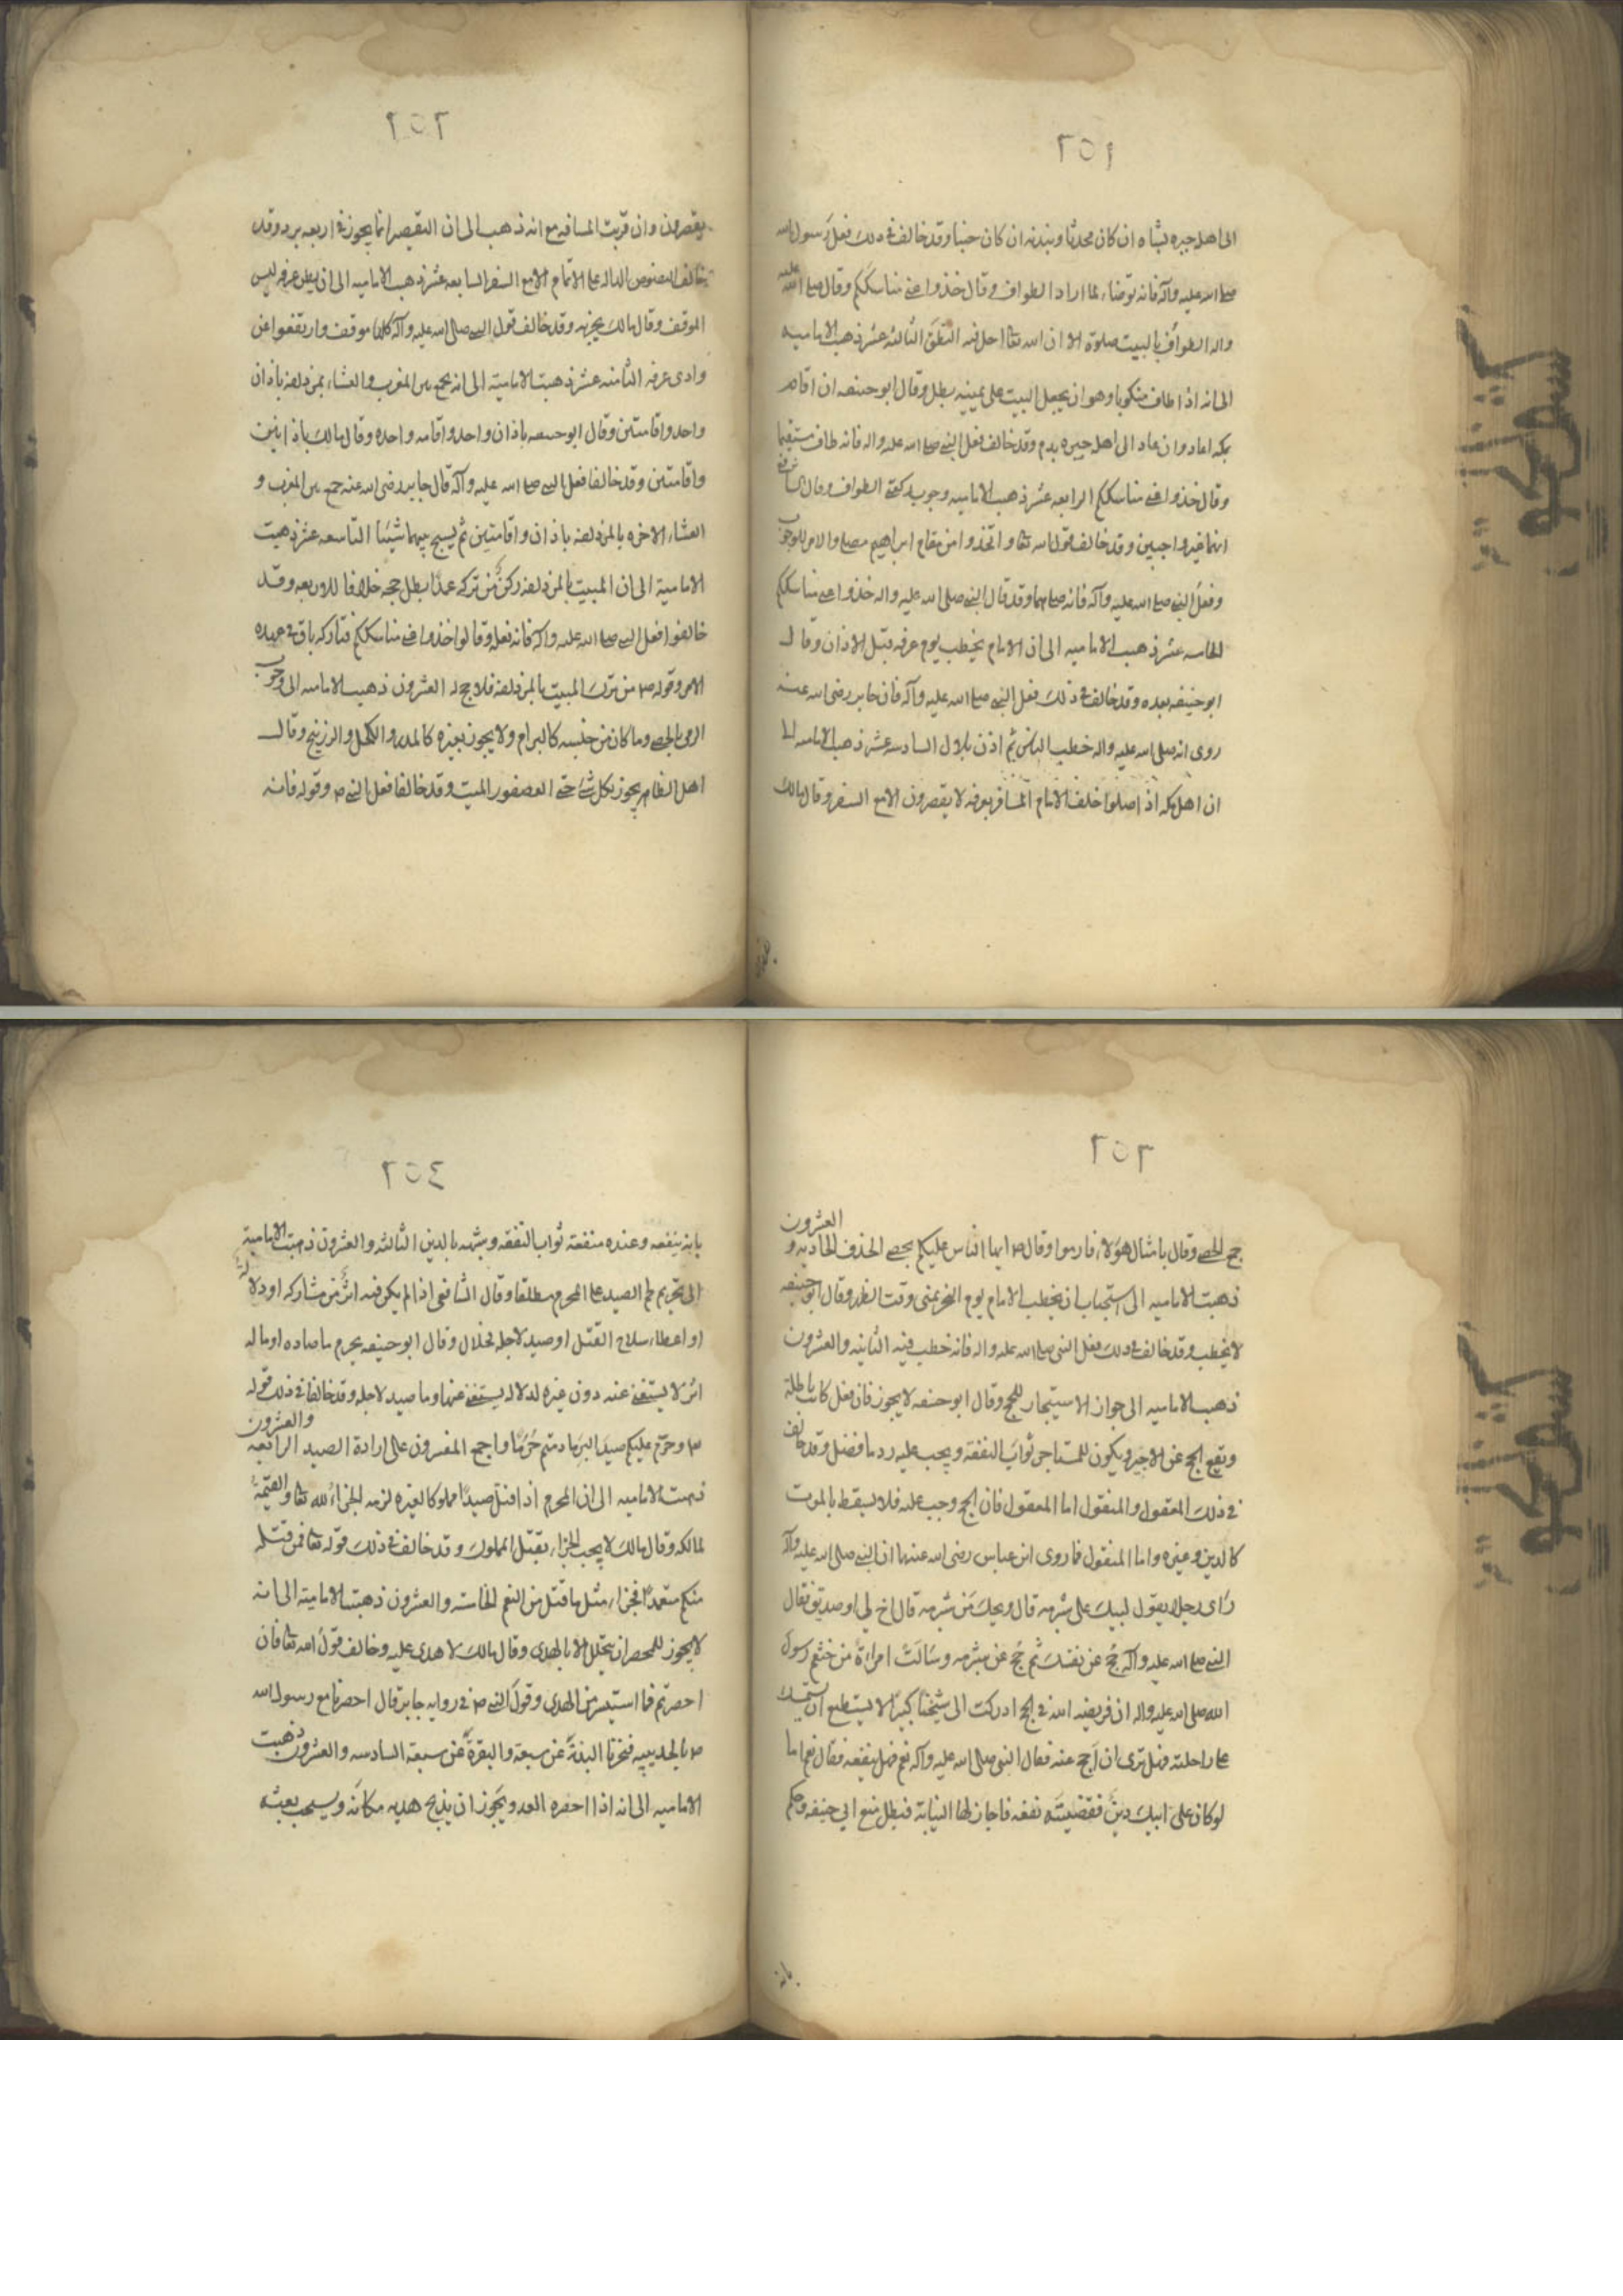 ٢٥١
الى اهله جبره بشاه ان كان محدثا وببدنه ان كان جنبا وقد خالف فى ذلك فعل رسول الله
صلى الله عليه وآله فانه توضاء لما اراد الطواف وقال خذوا عنى مناسككم وقال صلى الله عليه
واله الطواف بالبيت صلوة الا ان الله تعا احل فيه النطق الثالثه عشر ذهبت الاماميه
الى انه اذا طاف منكوبا وهو ان يجعل البيت على يمينه بطل وقال ابو حنيفه ان اقام
بمكه اعاد وان عاد الى اهله جبره بدم وقد خالف فعل النبى صلى الله عليه واله فانه طاف مستقيما
وقال خذوا عنى مناسككم الرابعه عشر ذهبت الاماميه وجوب ركعتى الطواف وقال الشافعى
انهما غير واجبين وقد خالف قول الله تعا واتخذوا من مقام ابراهيم مصلى والامر للوجوب
وفعل النبى صلى الله عليه وآله فانه صلاهما وقد قال النبى صلى الله عليه واله خذوا عنى مناسككم
الخامسه عشر ذهبت الاماميه الى ان الامام يخطب يوم عرفه قبل الاذان وقال
ابو حنيفه بعده وقد خالف فى ذلك فعل النبى صلى الله عليه وآله فان جابر رضى الله عنه
روى انه صلى الله عليه واله خطب الناس ثم اذن بلال السادسه عشر ذهبت الاماميه الى
ان اهل مكه اذا صلوا خلف الامام المسافر بعرفه لا يقصرون الا مع السفر وقال مالك
٢٥٢
يقصرون وان قربت المسافه مع انه ذهب الى ان التقصير انما يجوز فى اربعه برد وقد
خالف النصوص الداله على الاتمام الا مع السفر السابعه عشر ذهبت الاماميه الى ان بطن عرفه ليس
الموقف وقال مالك يجزيه وقد خالف قول النبى صلى الله عليه وآله كلها موقف وارتفعوا عن
وادى عرفه الثامنه عشر ذهبت الاماميه الى انه يجمع بين المغرب والعشاء بمزدلفه باذان
واحد واقامتين وقال ابو حنيفه باذان واحد واقامه واحده وقال مالك باذانين
واقامتين وقد خالفا فعل النبى صلى الله عليه وآله قال جابر رضى الله عنه جمع بين المغرب و
العشاء الاخره بالمزدلفه باذان واقامتين ثم يسبح بينهما شيئا التاسعه عشر ذهبت
الاماميه الى ان المبيت بالمزدلفه ركن من تركه عمدا بطل حجه خلافا للاربعه وقد
خالفوا فعل النبى صلى الله عليه وآله فانه فعله وقالوا خذوا عنى مناسككم فتاركه باق فى عهده
الامر وقوله ص من ترك المبيت بالمزدلفه فلا حج له العشرون ذهبت الاماميه الى وجوب
الرمى بالحصى وما كان من جنسه كالبرام ولا يجوز بغيره كالمدر والكحل والزرنيخ وقال
اهل الظاهر يجوز بكل شئ حتى العصفور الميت وقد خالفا فعل النبى ص وقوله فانه
٢٥٣
جمع الحصى وقال بامثال هؤلاء فارموا وقال ص ايها الناس عليكم بحصى الخذف الحاديه و العشرون
ذهبت الاماميه الى استحباب ان يخطب الامام يوم النحر بمنى وقت الظهر وقال ابو حنيفه
لا يخطب وقد خالف فى ذلك فعل النبى صلى الله عليه واله فانه خطب فيه الثانيه والعشرون
ذهبت الاماميه الى جواز الاستيجار للحج وقال ابو حنيفه لا يجوز فان فعل كانت باطلة
وتقع الحج عن الاجير ويكون للمستاجر ثواب النفقه ويجب عليه رد ما فضل وقد خالف
فى ذلك المعقول والمنقول اما المعقول فان الحج وجب عليه فلا يسقط بالموت
كالدين وغيره واما المنقول فما روى ابن عباس رضى الله عنهما ان النبى صلى الله عليه وآله
رأى رجلا يقول لبيك على شبرمه قال ويحك من شبرمه قال اخ لى او صديق فقال
النبى صلى الله عليه وآله حج عن نفسك ثم حج عن شبرمه وسألت امراة من خثعم رسول
الله صلى الله عليه واله ان فريضه الله فى الحج ادركت ابى شيخا كبيرا لا يستطيع ان يستمسك
على راحلته فهل ترى ان احج عنه فقال النبى صلى الله عليه وآله نعم فهل ينفعه فقال نعم اما
لو كان على ابيك دين فقضيته نفعه فاجاز لها النيابة فبطل منع ابى حنيفه وحكم
بانه
٢٥٤
بانه ينفعه وعنده منفعته ثواب النفقه وشبهه بالدين الثالثه والعشرون ذهبت الامامية
الى تحريم لحم الصيد على المحرم مطلقا وقال الشافعى اذا لم يكن فيه اثر من مشاركه او دلالة
او اعطاء سلاح القتل او صيد لاجله فحلال وقال ابو حنيفه يحرم ما صاده او ماله
اثر لا يستغنى عنه دون غيره لدلاله يستغنى عنها وما صيد لاجله وقد خالفا فى ذلك قوله
تع وحرم عليكم صيد البر ما دمتم حرما واجمع المفسرون على ارادة الصيد الرابعه والعشرون
ذهبت الاماميه الى ان المحرم اذا قتل صيدا مملوكا لغيره لزمه الجزاء لله تعا والقيمة
لمالكه وقال مالك لا يجب الجزاء بقتل المملوك وقد خالف فى ذلك قوله تعا فمن قتله
منكم متعمدا فجزاء مثل ما قتل من النعم الخامسه والعشرون ذهبت الاماميه الى انه
لا يجوز للمحصر ان يتحلل الا بالهدى وقال مالك لا هدى عليه وخالف قول الله تعا فان
احصرتم فما استيسر من الهدى وقول النبى ص فى روايه جابر قال احصرنا مع رسول الله
ص بالحديبيه فنحرنا البدنة عن سبعة والبقرة عن سبعة السادسه والعشرون ذهبت
الاماميه الى انه اذا احصره العدو يجوز ان يذبح هديه مكانه ويستحب بعثه